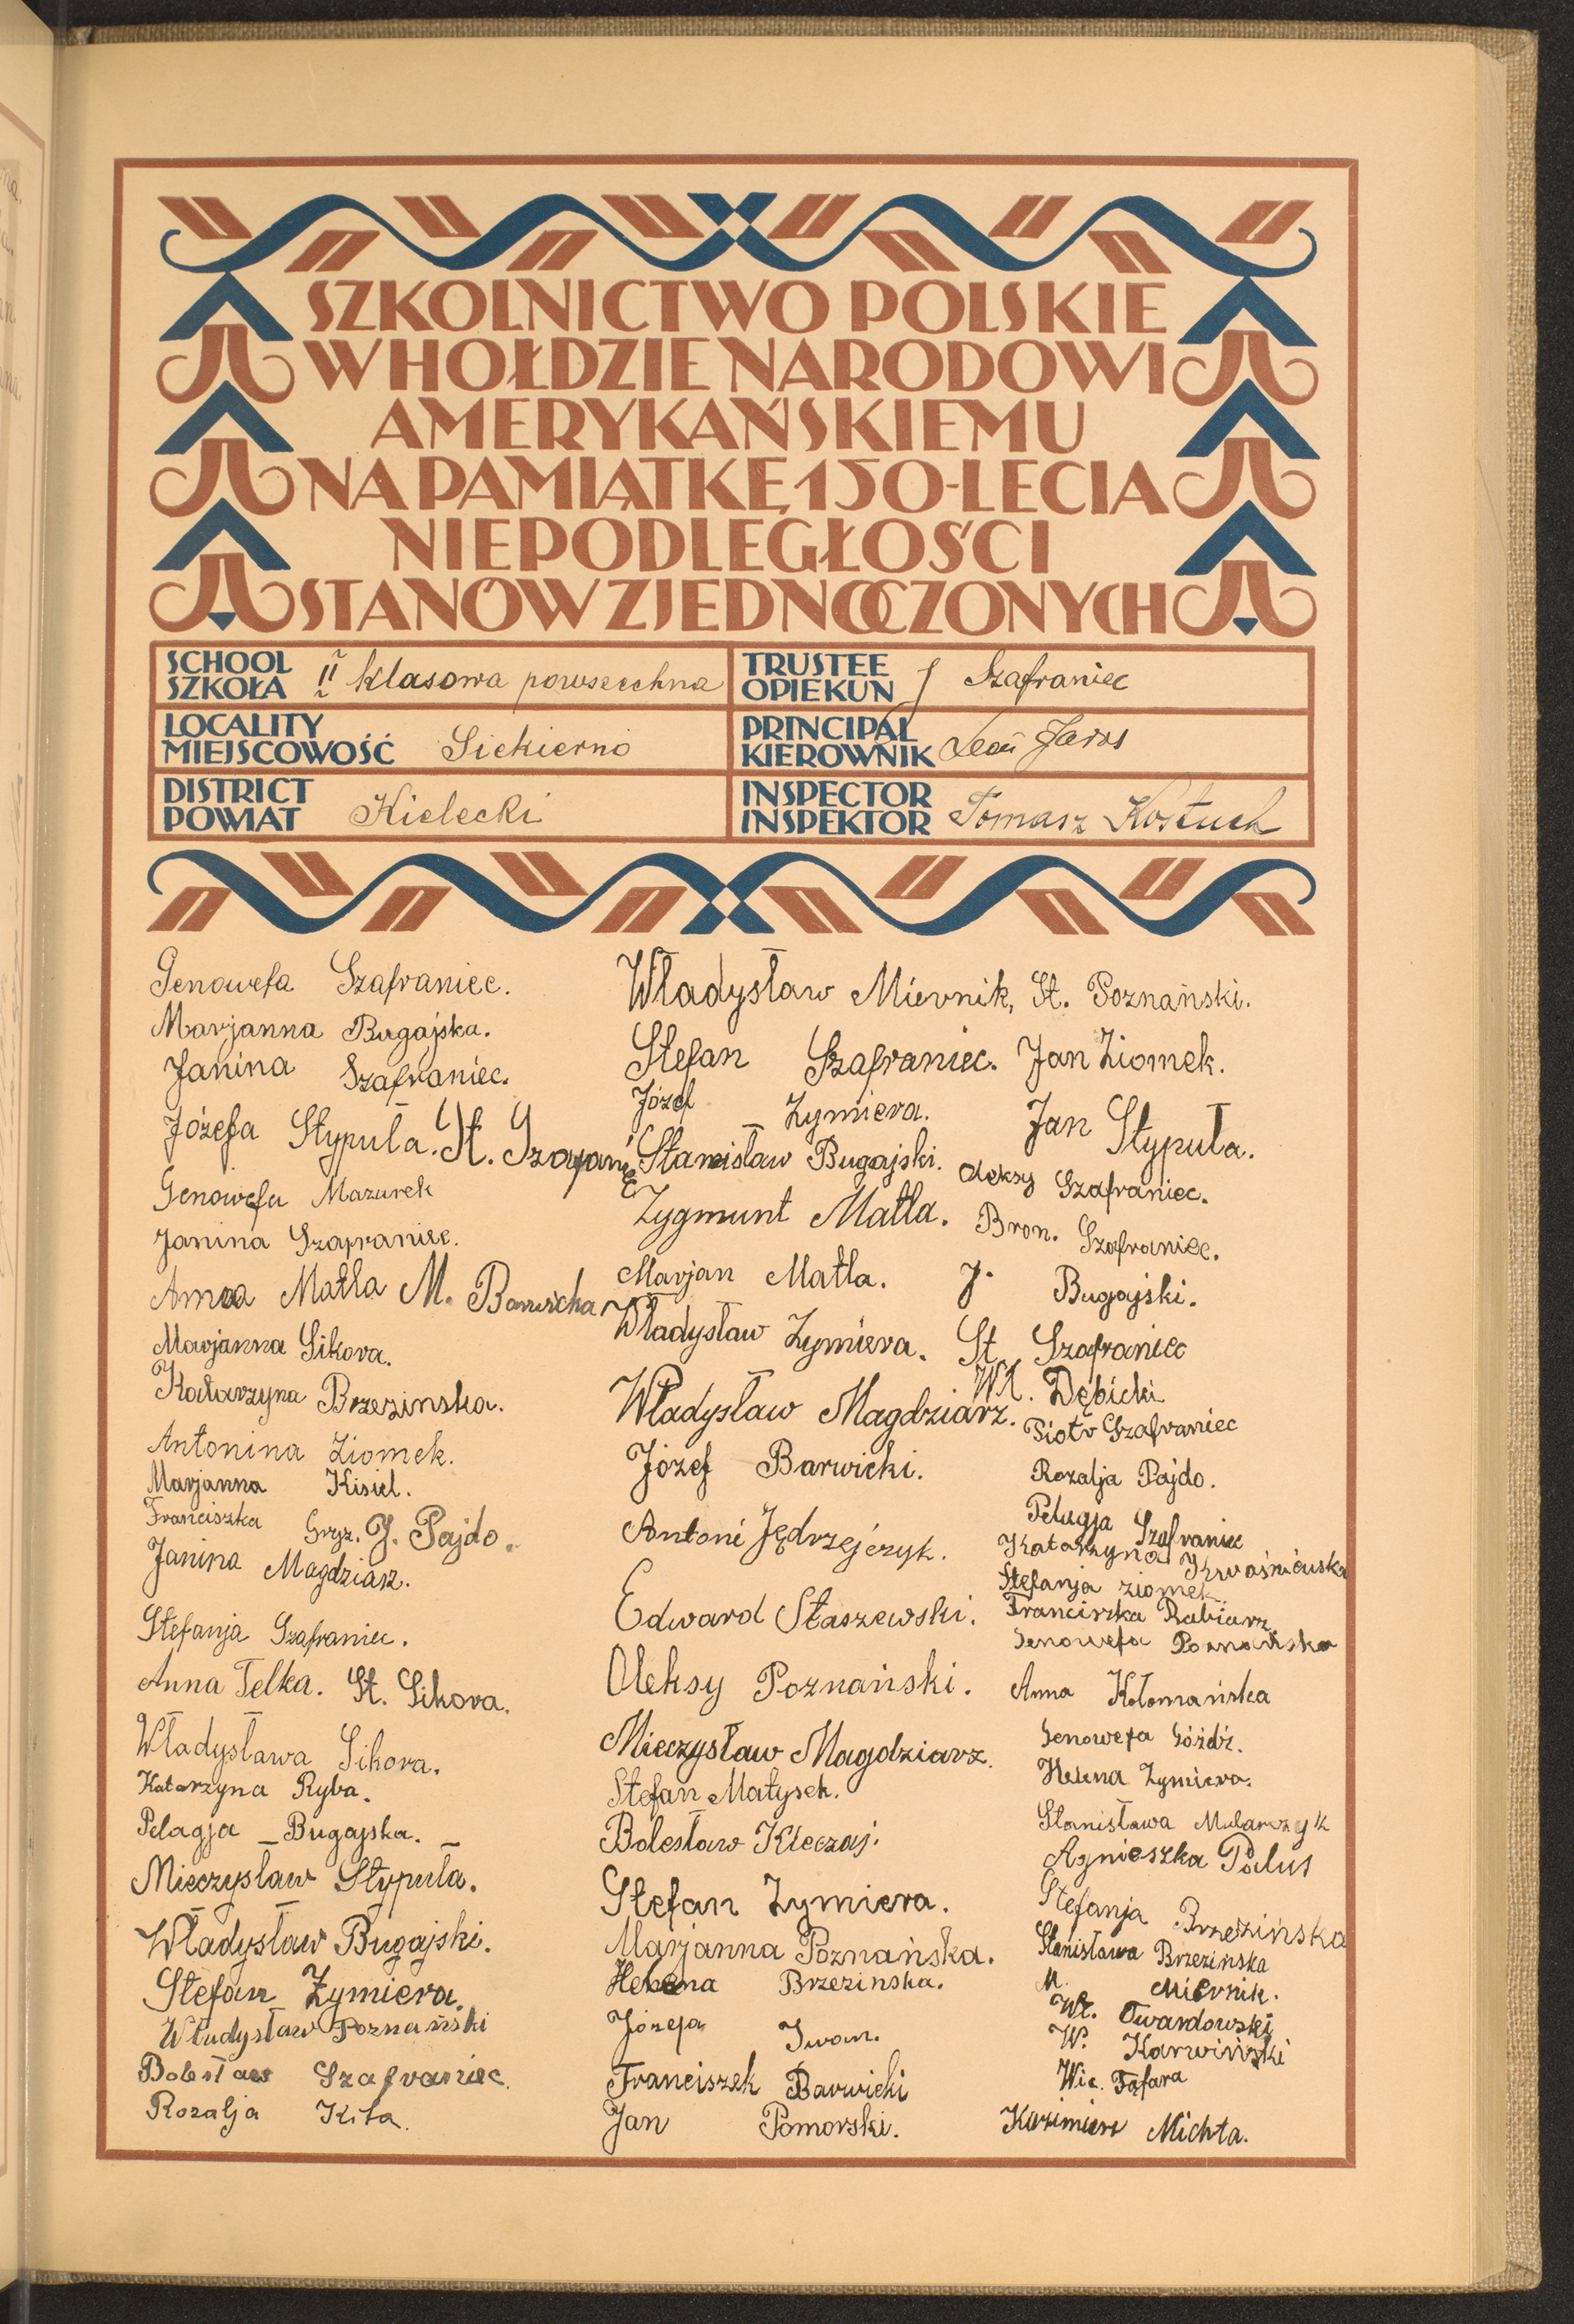 SZKOLNICTWO POLSKIE
W HOŁDZIE NARODOWI
AMERYKAŃSKIEMU
NA PAMIĄTKĘ 150-LECIA
NIEPODLEGŁOŚCI
STANÓW ZJEDNOCZONYCH
SCHOOL
SZKOŁA II klasowa powszechna
TRUSTEE
OPIEKUN J Szafraniec
LOCALITY
MIEJSCOWOŚĆ Siekierno
PRINCIPAL
KIEROWNIK Leon Jaros
DISTRICT
POWIAT Kielecki
INSPECTOR
INSPEKTOR Tomasz Kostuch
Genowefa Szafraniec.
Marjanna Bugajska.
Janina Szafraniec.
Józefa Stypuła. St.
Genowefa Mazurek
Janina Szafraniec.
Anna Matla M. Barwicka
Marjanna Sikora.
Katarzyna Brzezinska.
Antonina Ziomek.
Marjanna Kisiel.
Franciszka Gryz. J. Pajdo.
Janina Magdziarz.
Stefanja Szafraniec.
Anna Telka. St. Sikora.
Władysława Sikora.
Katarzyna Ryba.
Pelagja - Bugajska. -
Mieczysław Stypuła.
Władysław Bugajski.
Stefan Zymiera.
Władysław Poznański
Bolesław Szafraniec.
Rozalja Kita.
Władysław Miernik, St. Poznański.
Stefan Szafraniec. Jan Ziomek.
Józef Zymiera. Jan Stypuła.
Stanisław Bugajski. Aleksy Szafraniec.
Zygmunt Matla. Bron. Szafraniec.
Marjan Matla. J. Bugajski.
Władysław Zymiera. St. Szafraniec
Wł. Dębicki
Władysław Magdziarz. Piotr Szafraniec
Józef Barwicki.
Antoni Jędrzejczyk.
Edward Staszewski.
Oleksy Poznański.
Mieczysław Magdziarz.
Stefan Małysek.
Bolesław Kleczaj.
Stefan Zymiera.
Marjanna Poznańska.
Helena Brzezinska.
Józefa Iwan.
Franciszek Barwicki
Jan Pomorski.
Rozalja Pajdo.
Pelagja Szafraniec
Katarzyna Kwaśniewska
Stefanja ziomek.
Franciszka Rabiarz
Genowefa Poznańska
Anna Kołomańska
Genowefa Góźdź.
Helena Zymiera.
Stanisława Mularczyk
Agnieszka Palus
Stefanja Brzezińska
Stanisława Brzezinska
M. Miernik.
Wł. Twardowski
W. Karwiński
Wic. Fąfara
Kazimierz Michta.